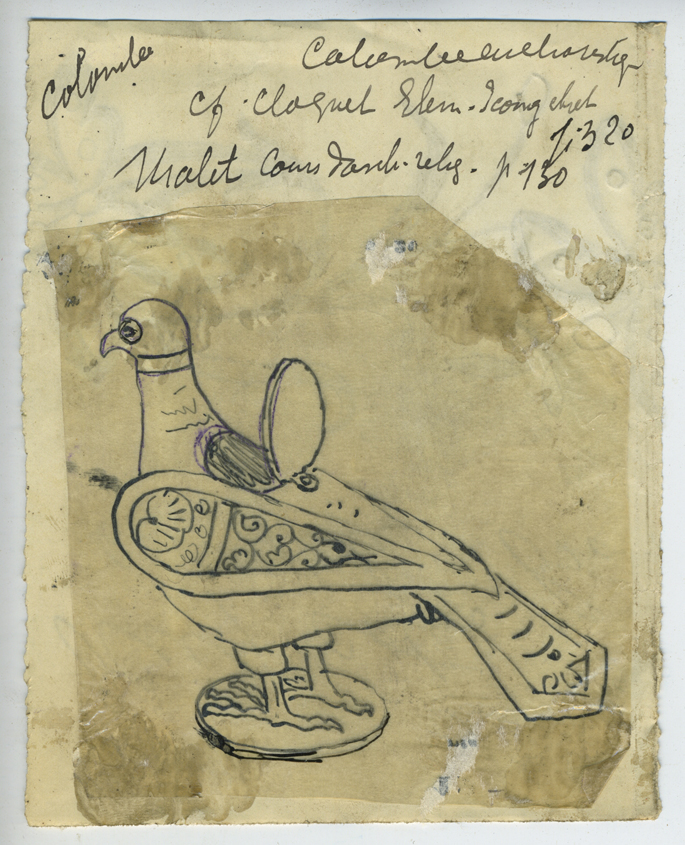 Colombe
Colombe eucharistiq
cf. Cloquet Elem. Iconog chret
p. 320
Malet Cours d'arch. relig. p 130